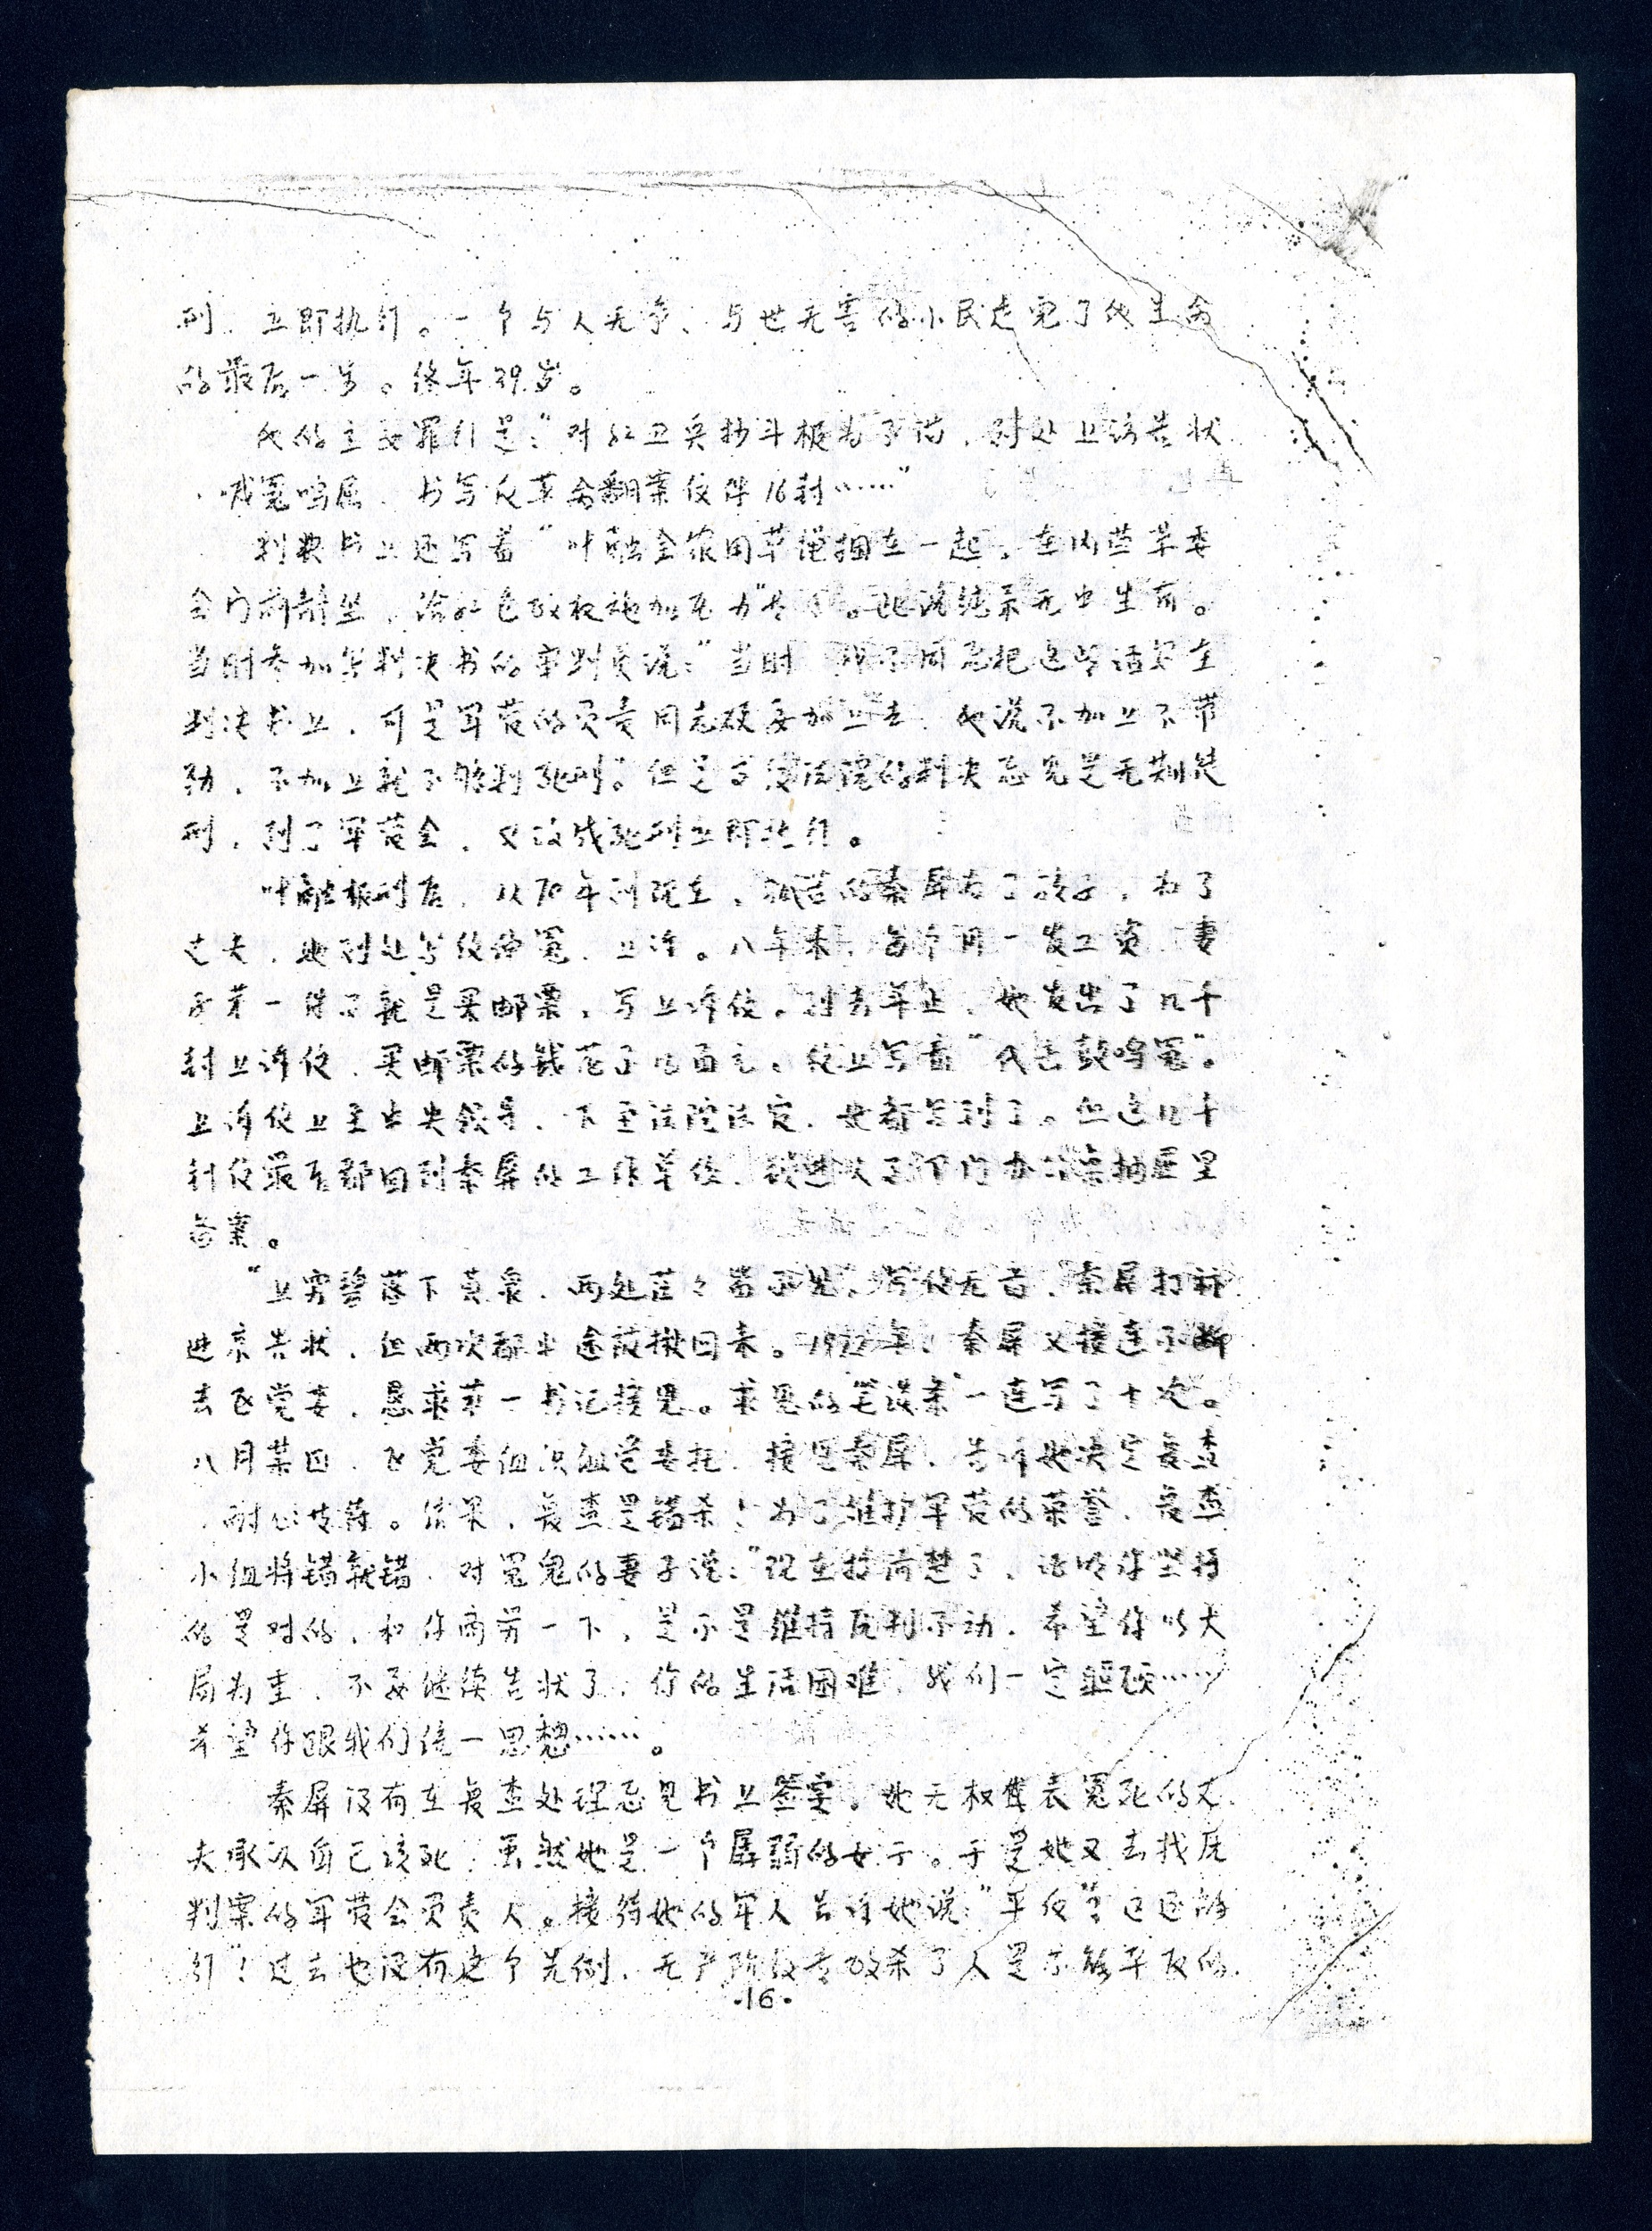 刑、立即执行。一个与人无争、与世无害的小民走完了他生命
的最后一步。终年39岁。
他的主要罪行是:“对红卫兵抄斗极为不满,到处上访告状
,喊冤鸣屈、书写反革命翻案信件16封……”
判决书上还写着“叶融全家用草绳捆在一起,在内蒙革委
会门前静坐,给红色政权施加压力”。此说纯系无中生有。
当时参加写判决书的审判员说:“当时 我不同意把这些话写在
判决书上,可是军管的负责同志硬要加上去,他说不加上不带
劲,不加上就不够判死刑。但是 法院的判决意见是无期徒
刑,到了军管会,又改成死刑立即执行。
叶融被刑后,从70年到现在,孤苦的秦屏 了孩子,为了
丈夫,她到处写信伸冤、上诉。八年来,每个月一发工资,妻
子第一件事就是买邮票,写上诉信。到去年止,她发出了几千
封上诉信,买邮票的钱花了几百元,信上写着“代击鼓鸣冤”。
上诉信上至中央领导、下至法院法官,她都写到了。但这几千
封信最后都回到秦屏的工作单位,锁进 办公桌抽屉里
备案。
“上穷碧落下黄泉,两处茫々皆不见”,写信无音,秦屏打算
进京告状,但两次都半途被揪回来。 年,秦屏又接连不断
去区党委,恳求第一书记接见。求见的“笔谈条”一连写了十次。
八月某日,区党委组织组受委托,接见秦屏,告诉她决定复查
,耐心等待。结果,复查是错杀!为了维护军管的荣誉,复查
小组将错就错,对冤鬼的妻子说:“现在搞清楚了,证明你坚持
的是对的,和你商量一下,是不是维持原判不动,希望你以大
局为重,不要继续告状了,你的生活困难,我们一定照顾……
希望你跟我们统一思想……。
秦屏没有在复查处理意见书上签字,她无权代表冤死的丈
夫承认自己该死,虽然她是一个孱弱的女子。于是她又去找原
判案的军管会负责人。接待她的军人告诉她说:“平反”?这还能
行”!过去也没有这个先例,无产阶级专政杀了人是不能平反的.
·16·